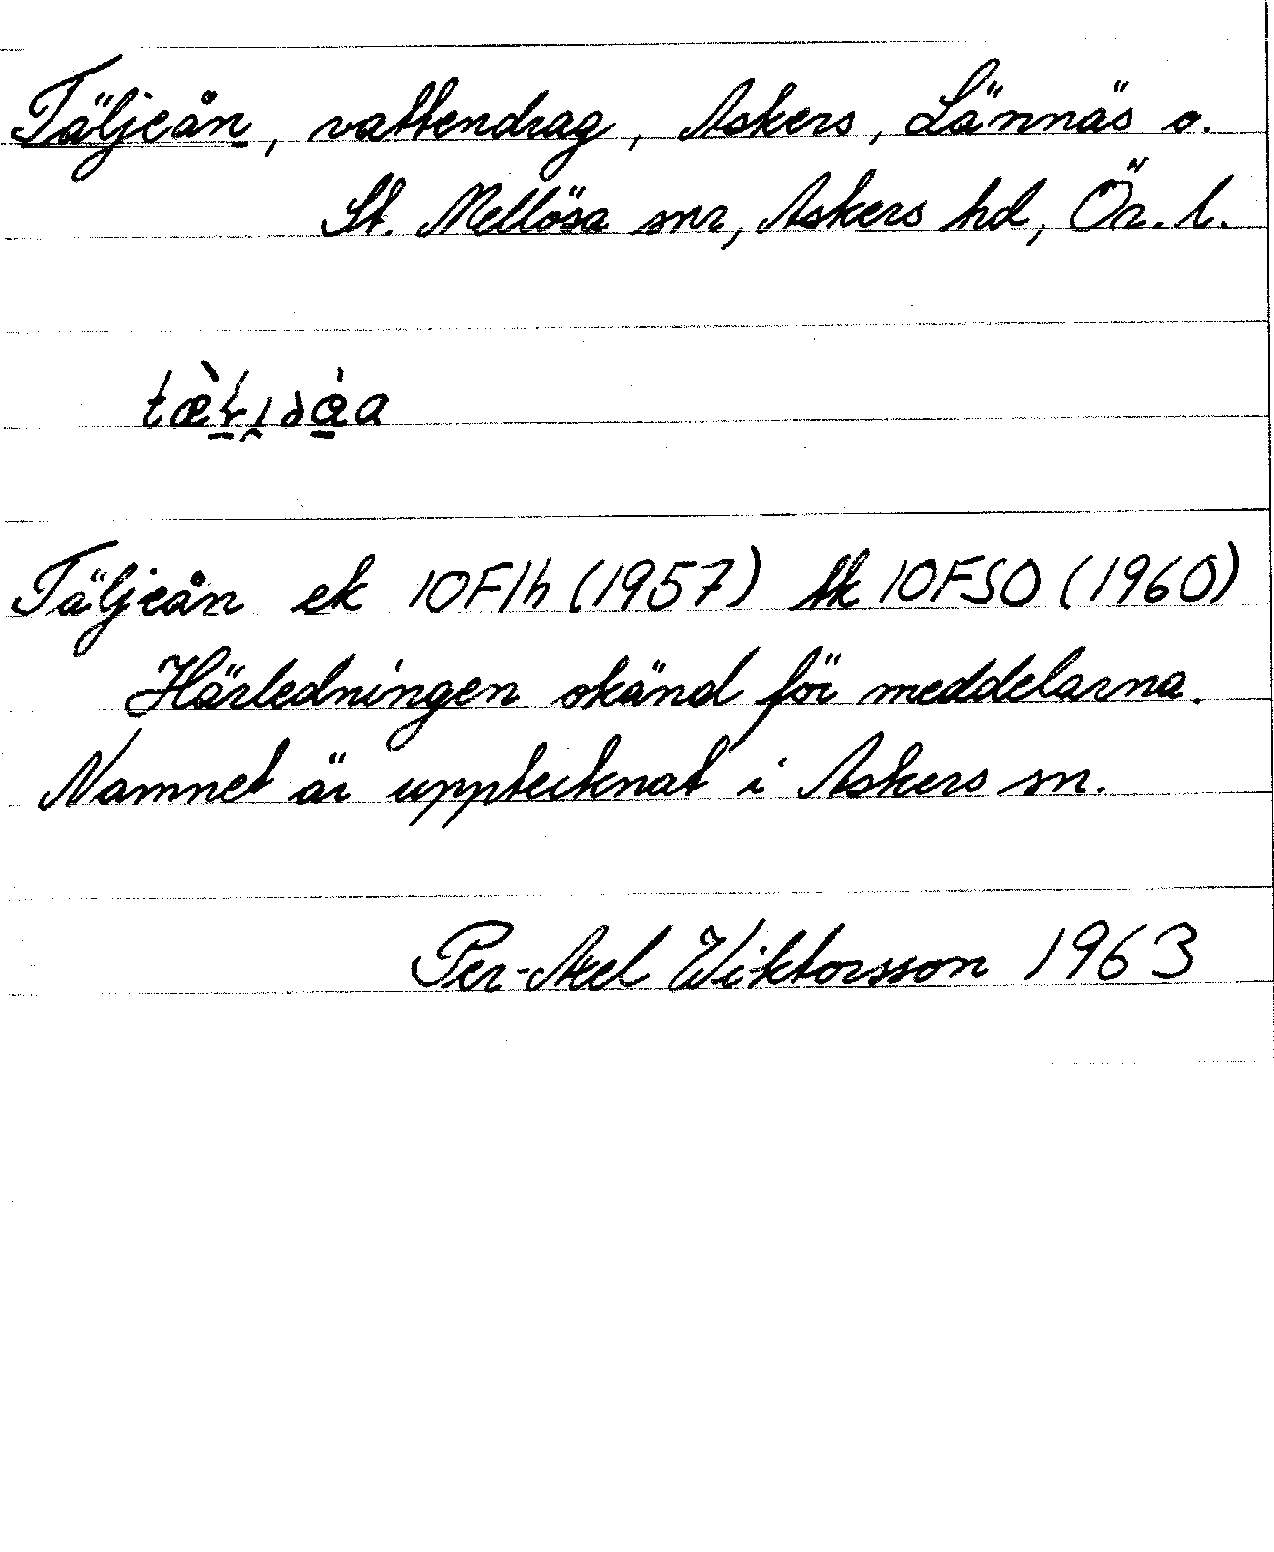 Täljeån, vattendrag, Askers, Lännäs o.
St. Mellösa snr, Askers hd, Ör. l.
Täljeån ek 10F1h (1957) tk 10FSO (1960)
Härledningen okänd för meddelarna.
Namnet är upptecknat i Askers sn.
Per-Axel Wiktorsson 1963